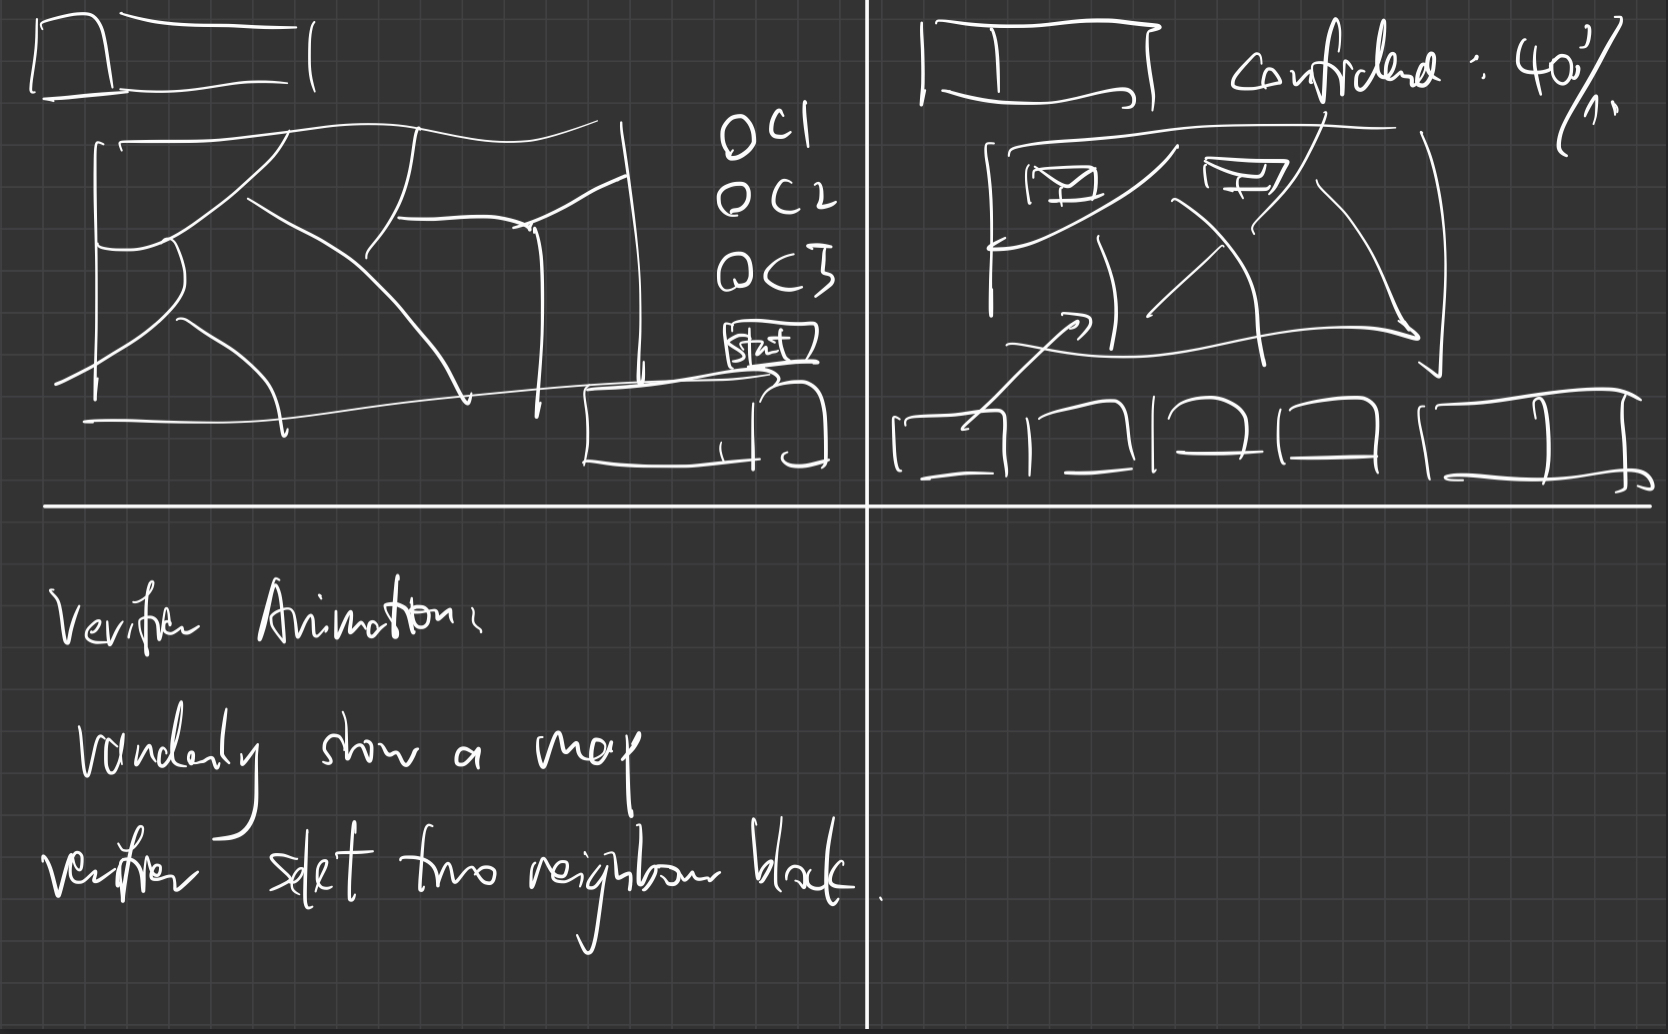 OC1
OC2
OC3
start
confidence: 40%
Verifier Animation:
randomly show a map
verifier select two neighbour block.